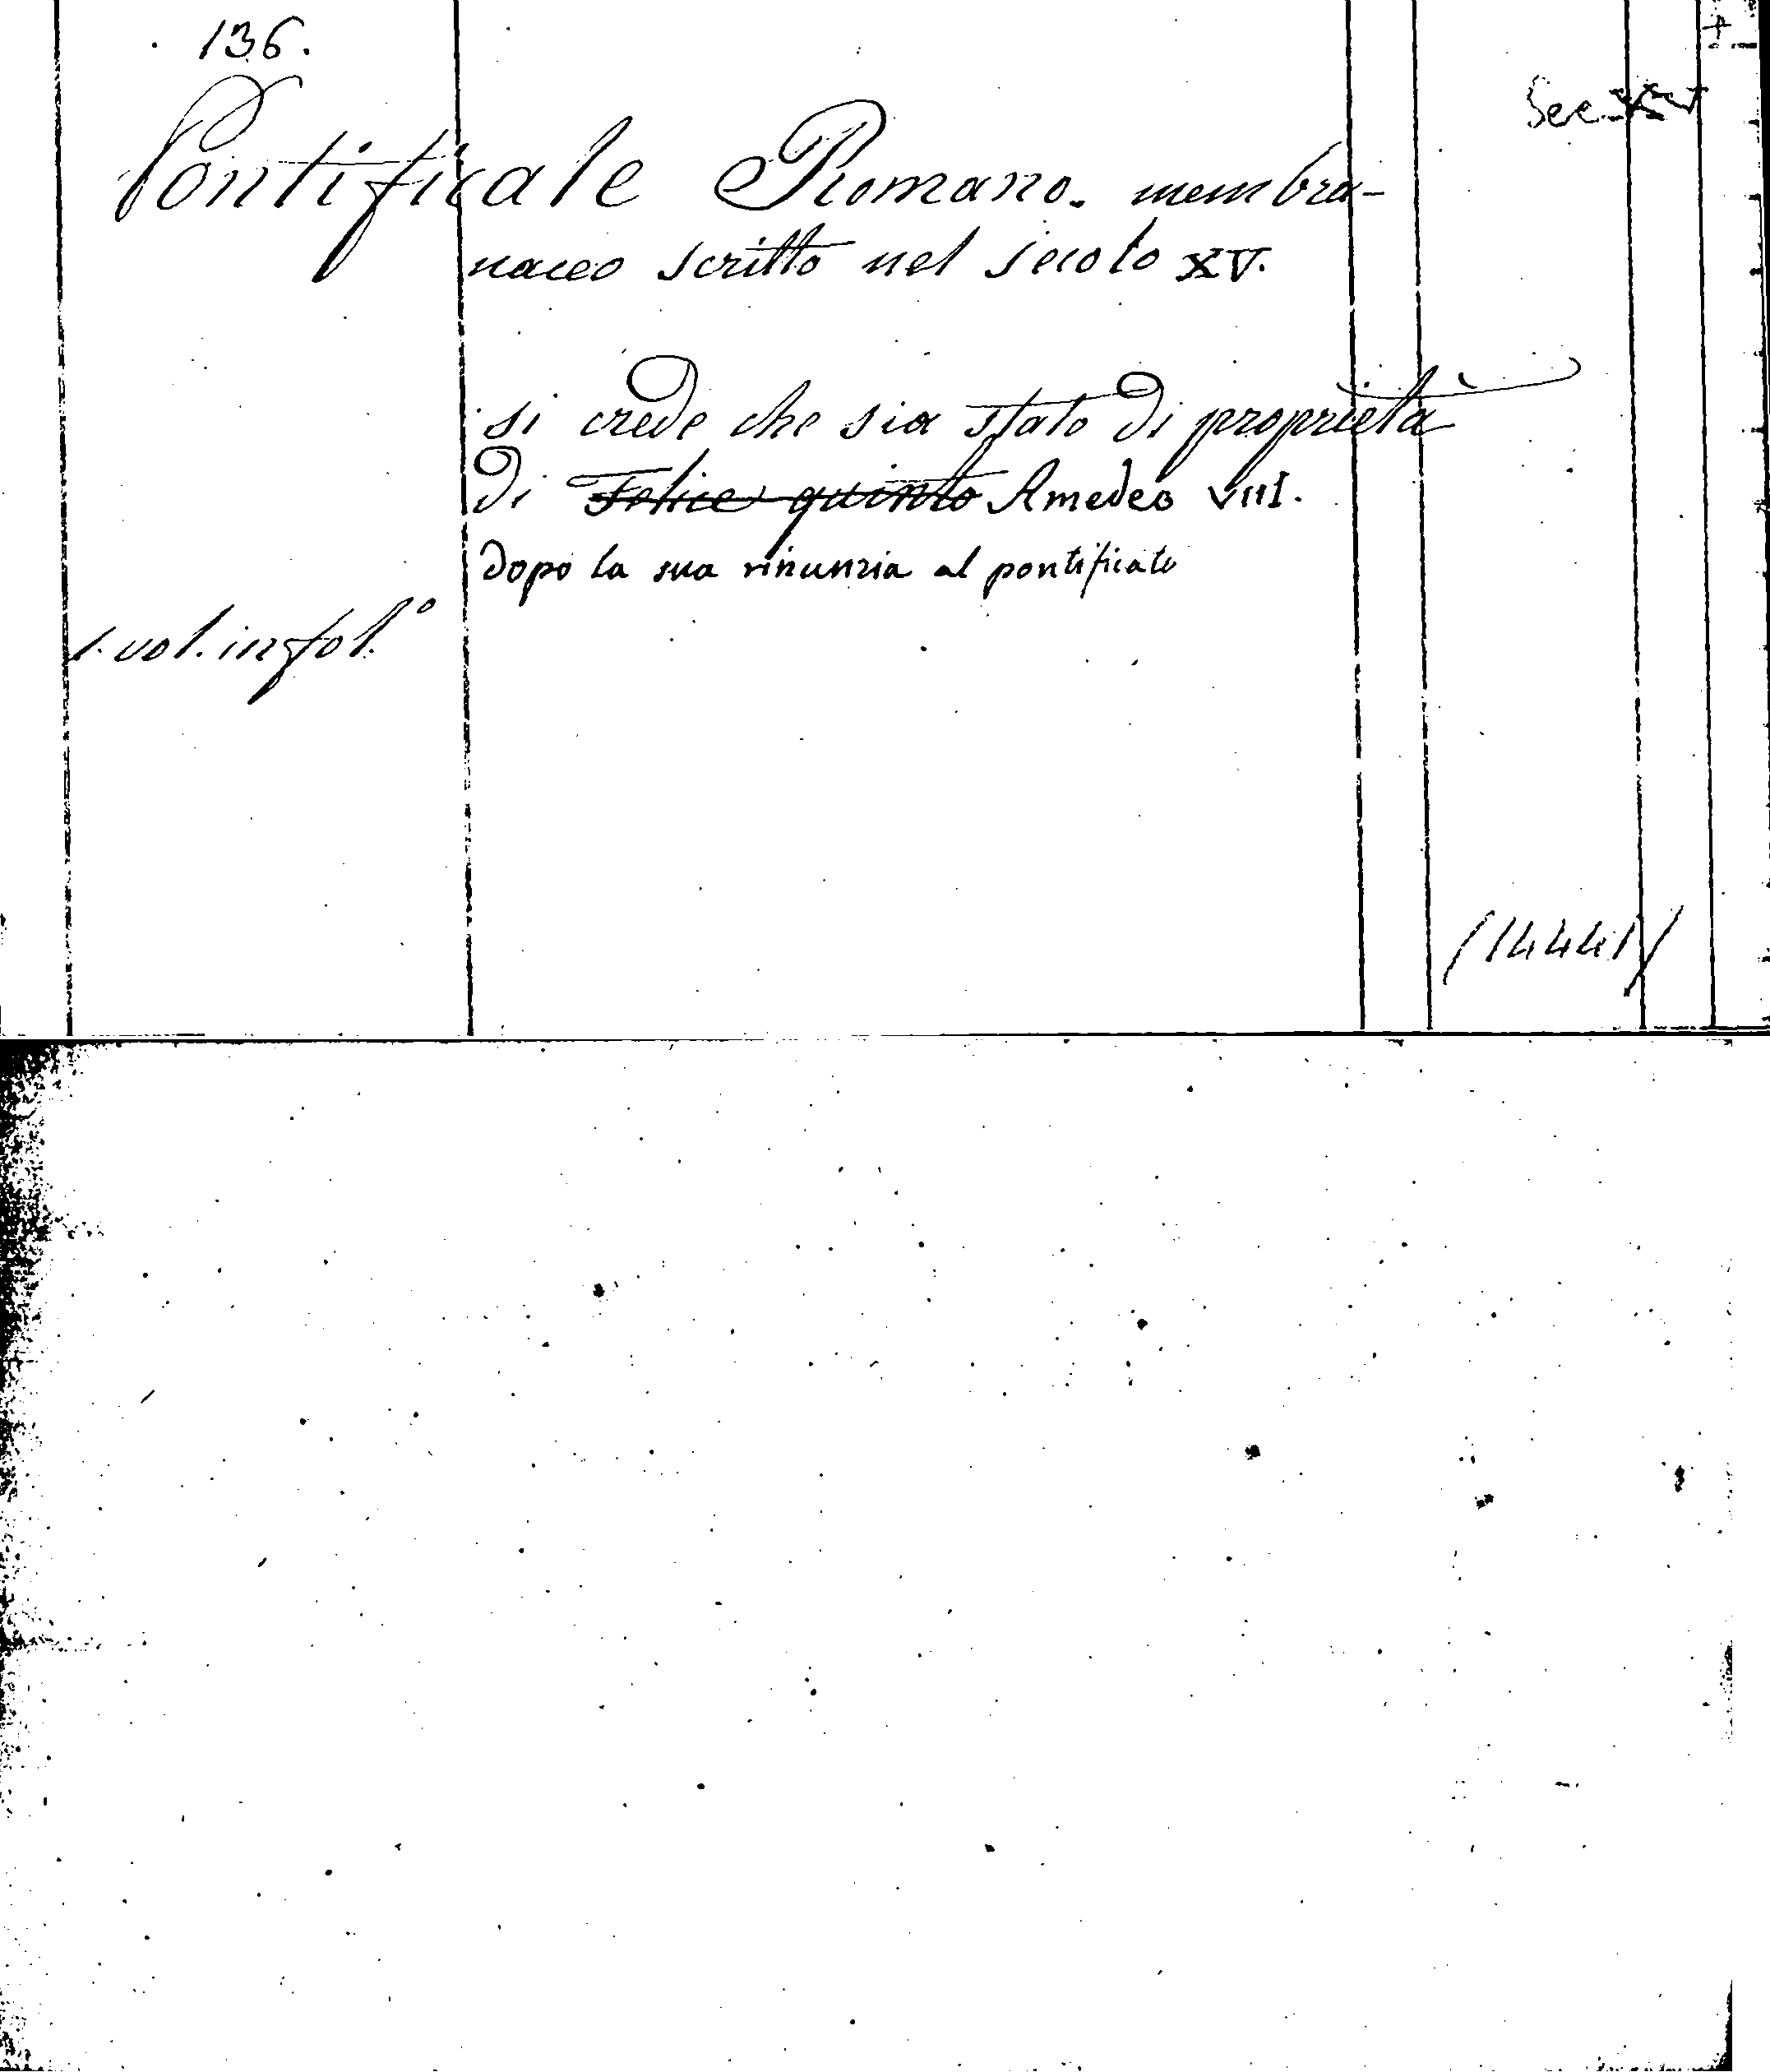 136.
Sec. XV
Pontificale Romano. membra-
naceo scritto nel secolo XV.
si crede che sia stato di proprietà
di Felice quinto Amedeo VIII.
dopo la sua rinunzia al pontificato
1. vol. in fol.º
(1441)